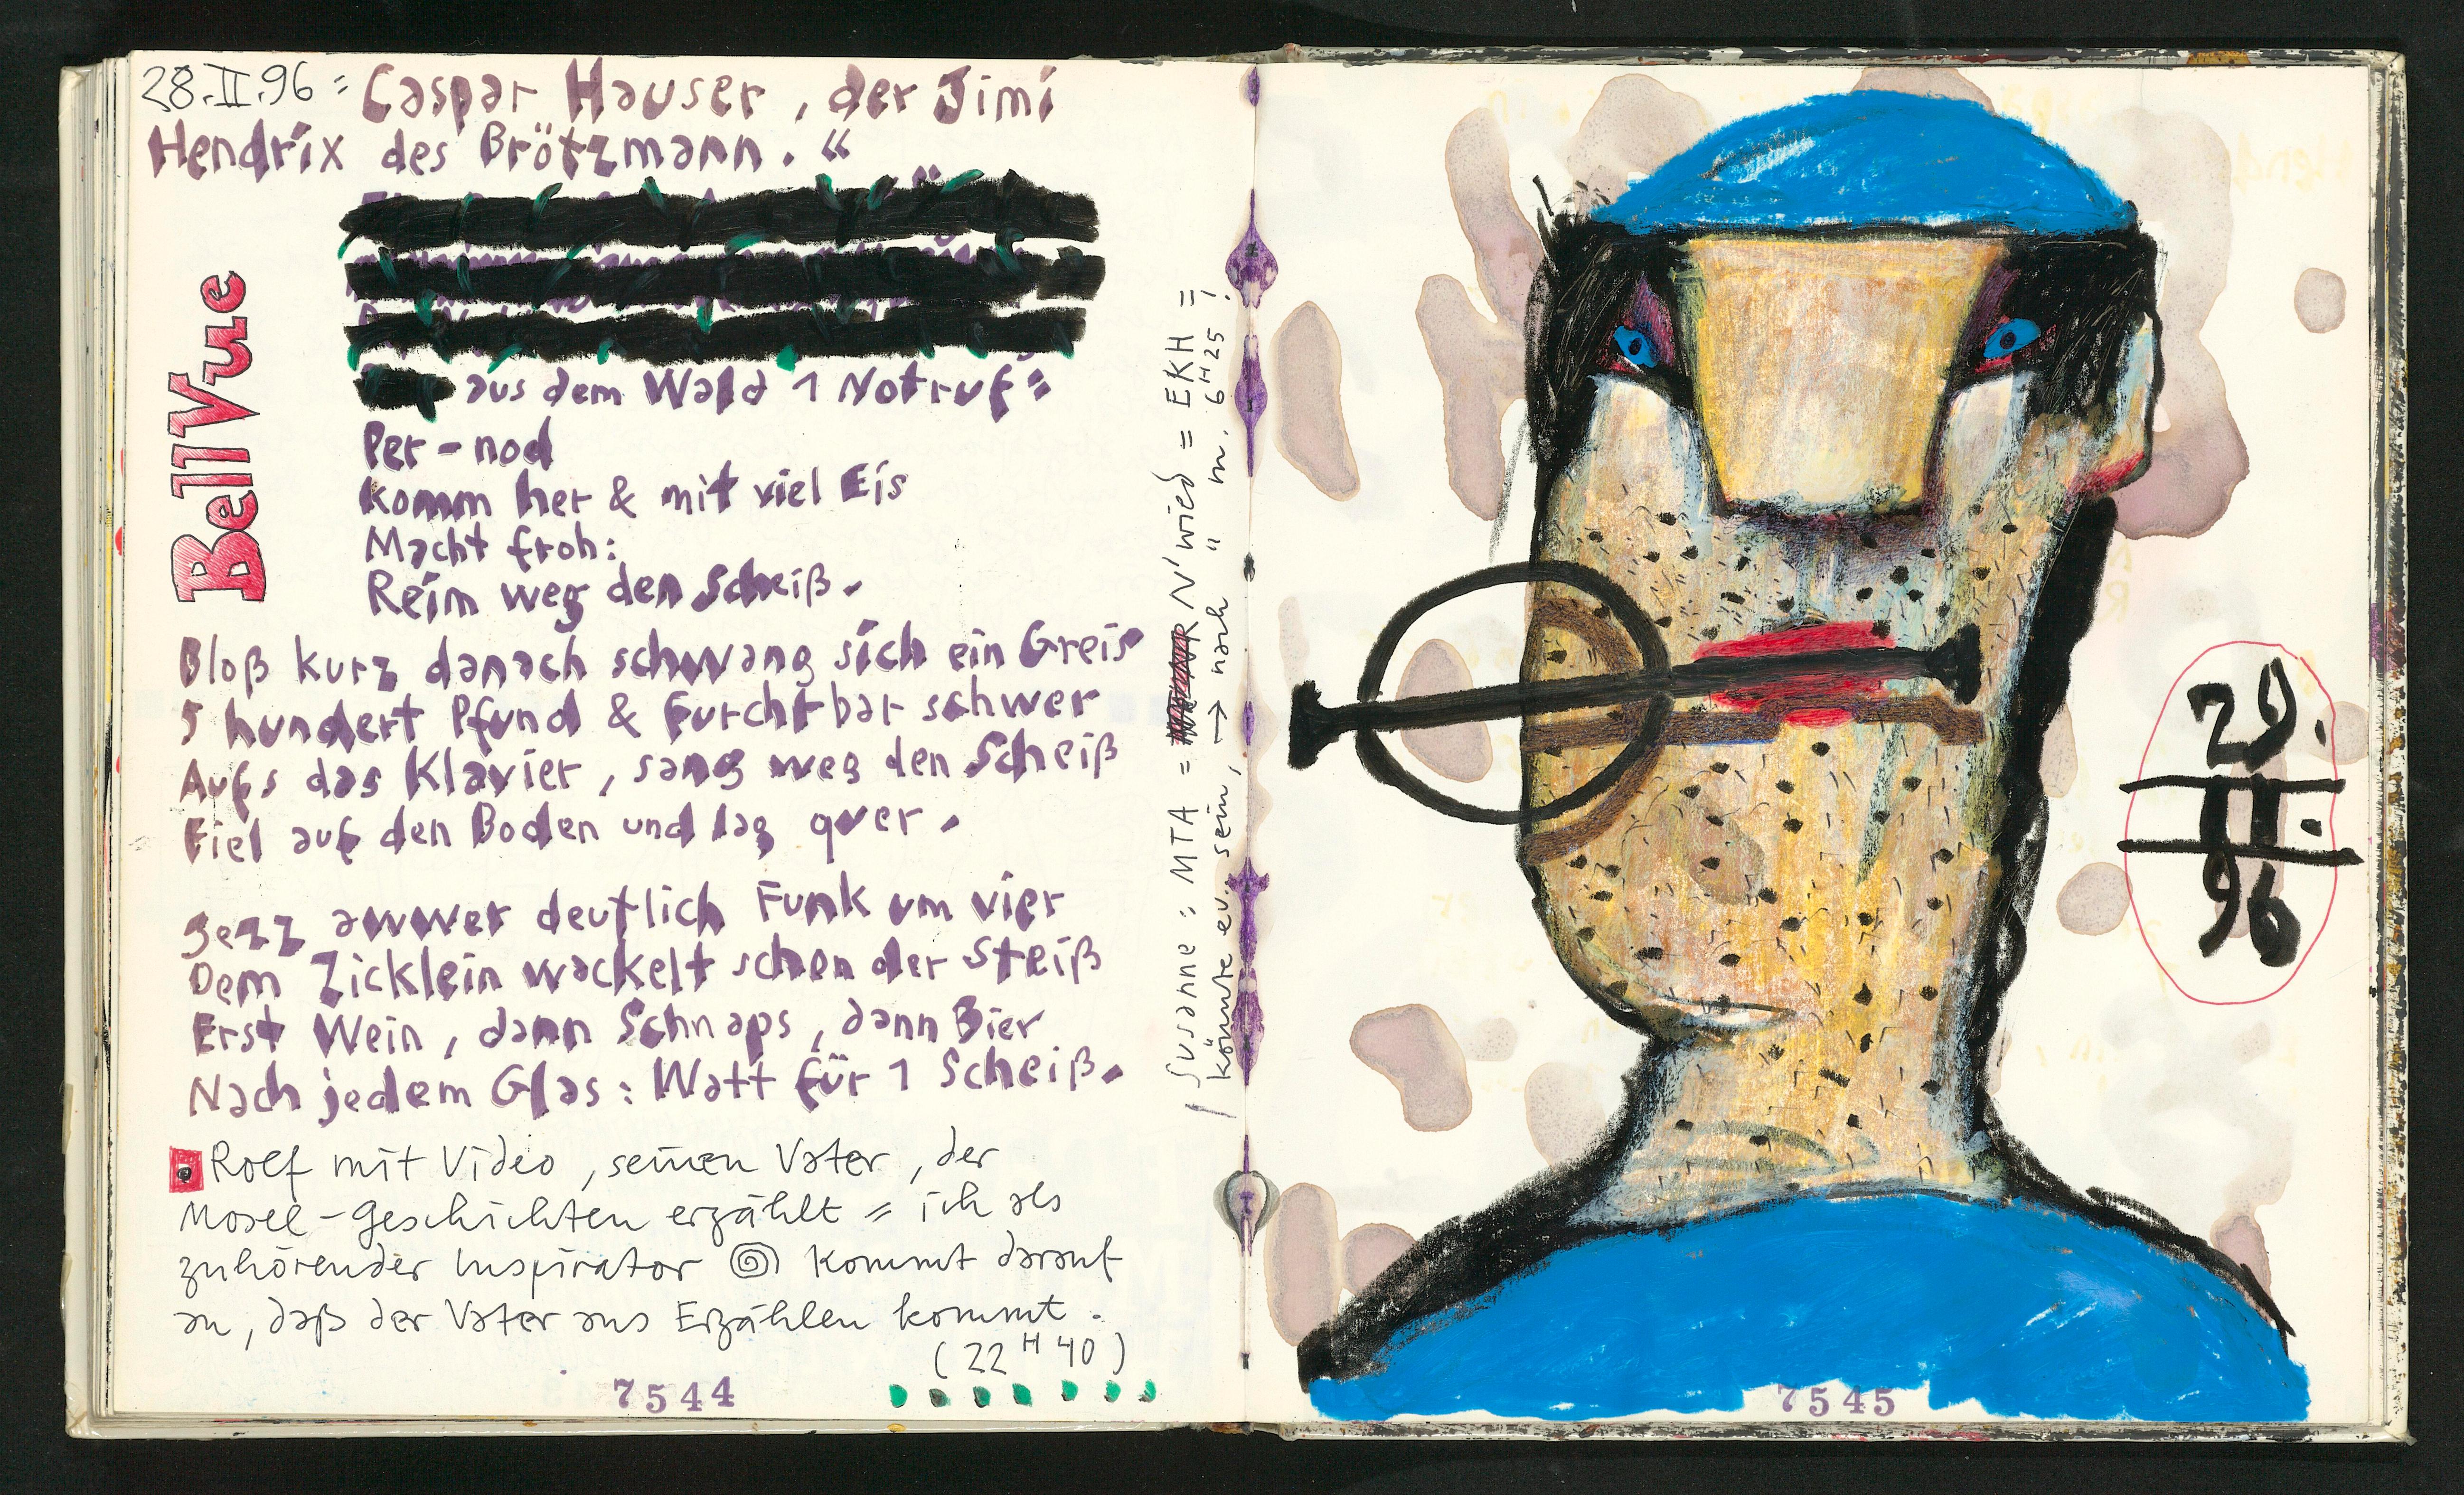 28.II.96 = Caspar Hauser, der Jimi
Hendrix des Brötzmann. "
aus dem Wald 1 Notruf =
Per-nod
komm her & mit viel Eis
Macht froh:
Reim weg den Scheiß.
BellVue
Bloß kurz danach schwang sich ein Greis
5 hundert Pfund & furchtbar schwer
Aufs das Klavier, sang weg den Scheiß
Fiel auf den Boden und lag quer.
Jezz awwer deutlich Funk um vier
Dem Zicklein wackelt schon der Steiß
Erst Wein, dann Schnaps, dann Bier
Nach jedem Glas: Watt für 1 Scheiß.
Rolf mit Video, seinen Vater, der
Mosel-Geschichten erzählt = ich als
zuhörender Inspirator kommt darauf
an, daß der Vater ans Erzählen kommt.
(22 H 40)
7544
Susanne: MTA = N'wied = EKH =
könnte ev. sein, → nach " m. 6 H 25!
29.
II.
96
7545